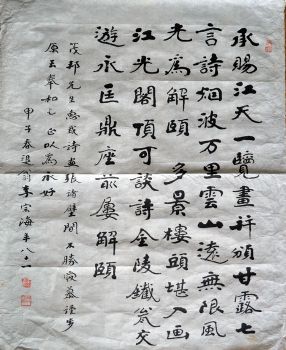 承賜江天一覽畫并頒甘露七
言詩烟波万里雲山遠無限風
光為解頤 多景樓頭堪入画
江光閣頂可談詩金陵鐵瓮交
游永匡鼎座前屢解頤
茂邦先生惠我詩畫張諸壁間不勝慕謹步
原玉奉和乞正以為永好
甲子春退翁李宗海年八十一